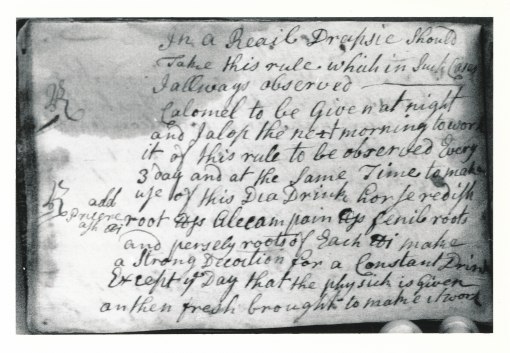 In a Reail Drapsie Should
Take this rule which in Such Cases
I allways observed
Calomel to be Given at night
and Jalop the next morning to work
it of this rule to be observed Every
3 day and at the Same Time to make
use of this Dia Drink horse redish
root Alecampain fenil roots
and persely roots of Each make
a Strong Decoction for a Constant Drink
Except ye Day that the physick is given
an then fresh brought to make it work
add
ash